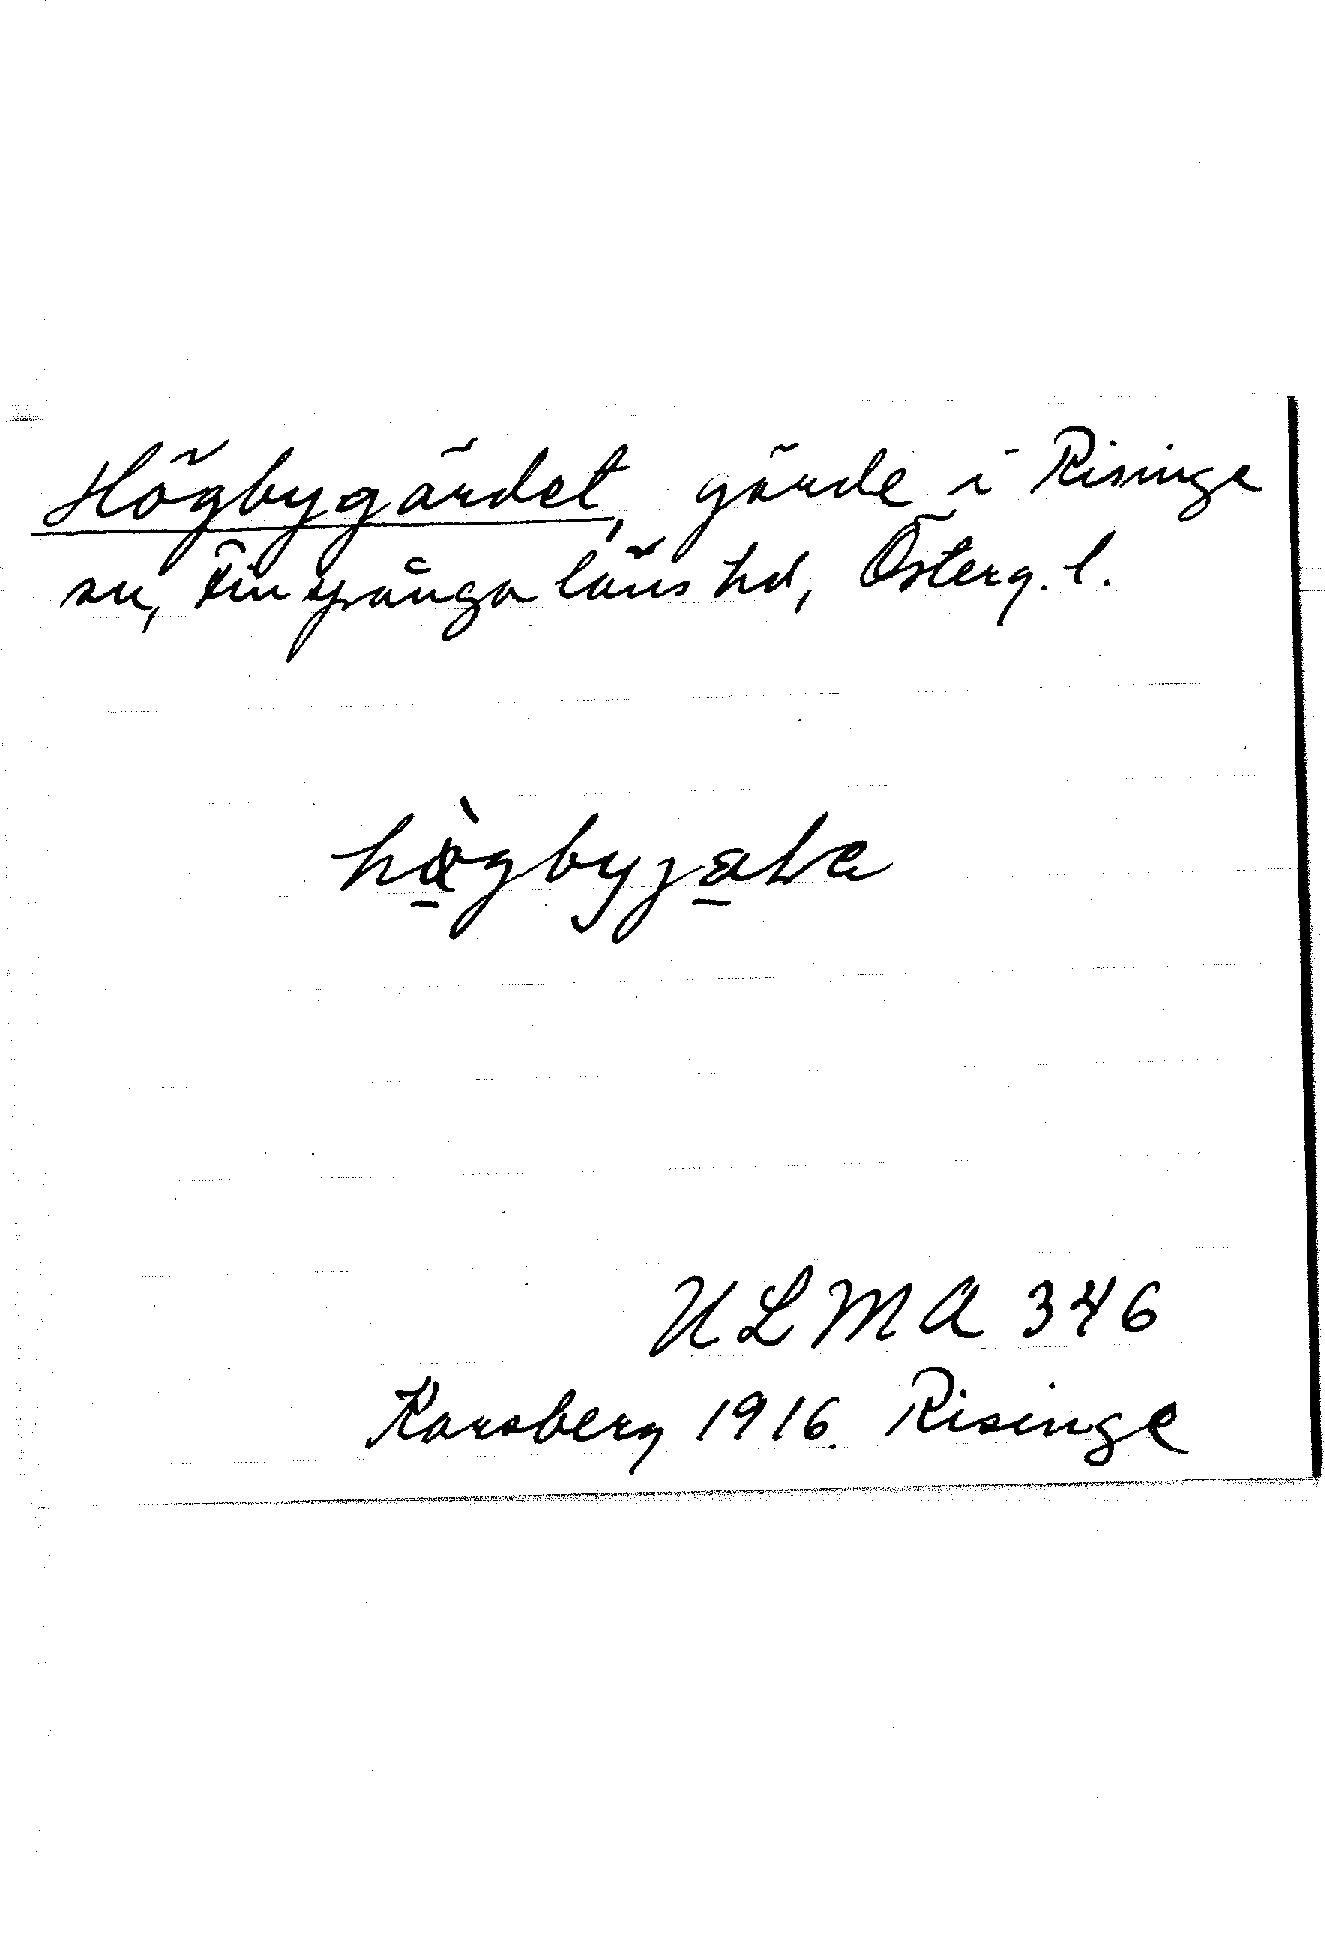 Högbygärdet, gärde i Risinge
sn, Finspånga läns hd, Österg. l.
ULMA 346
Karsberg 1916. Risinge